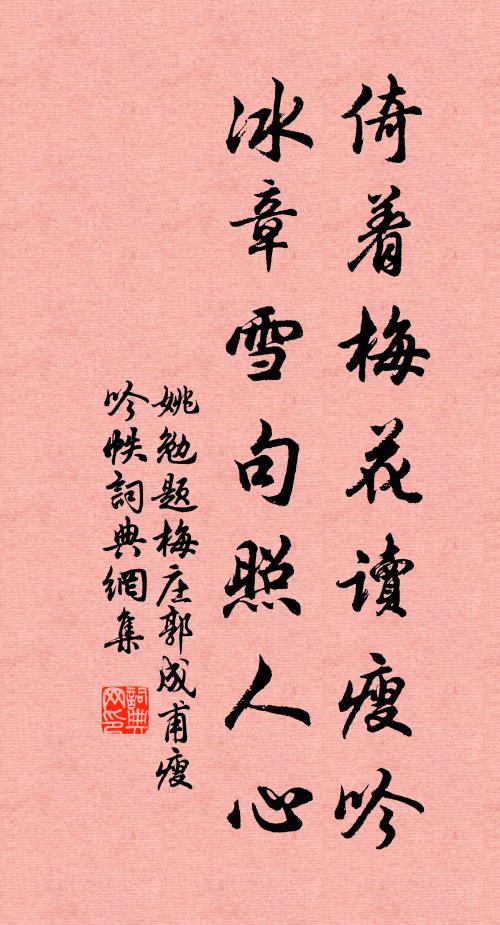 倚着梅花读瘦吟
冰章雪句照人心
姚勉题梅庄郭成甫瘦
吟帙詞典網集
詞典
网印